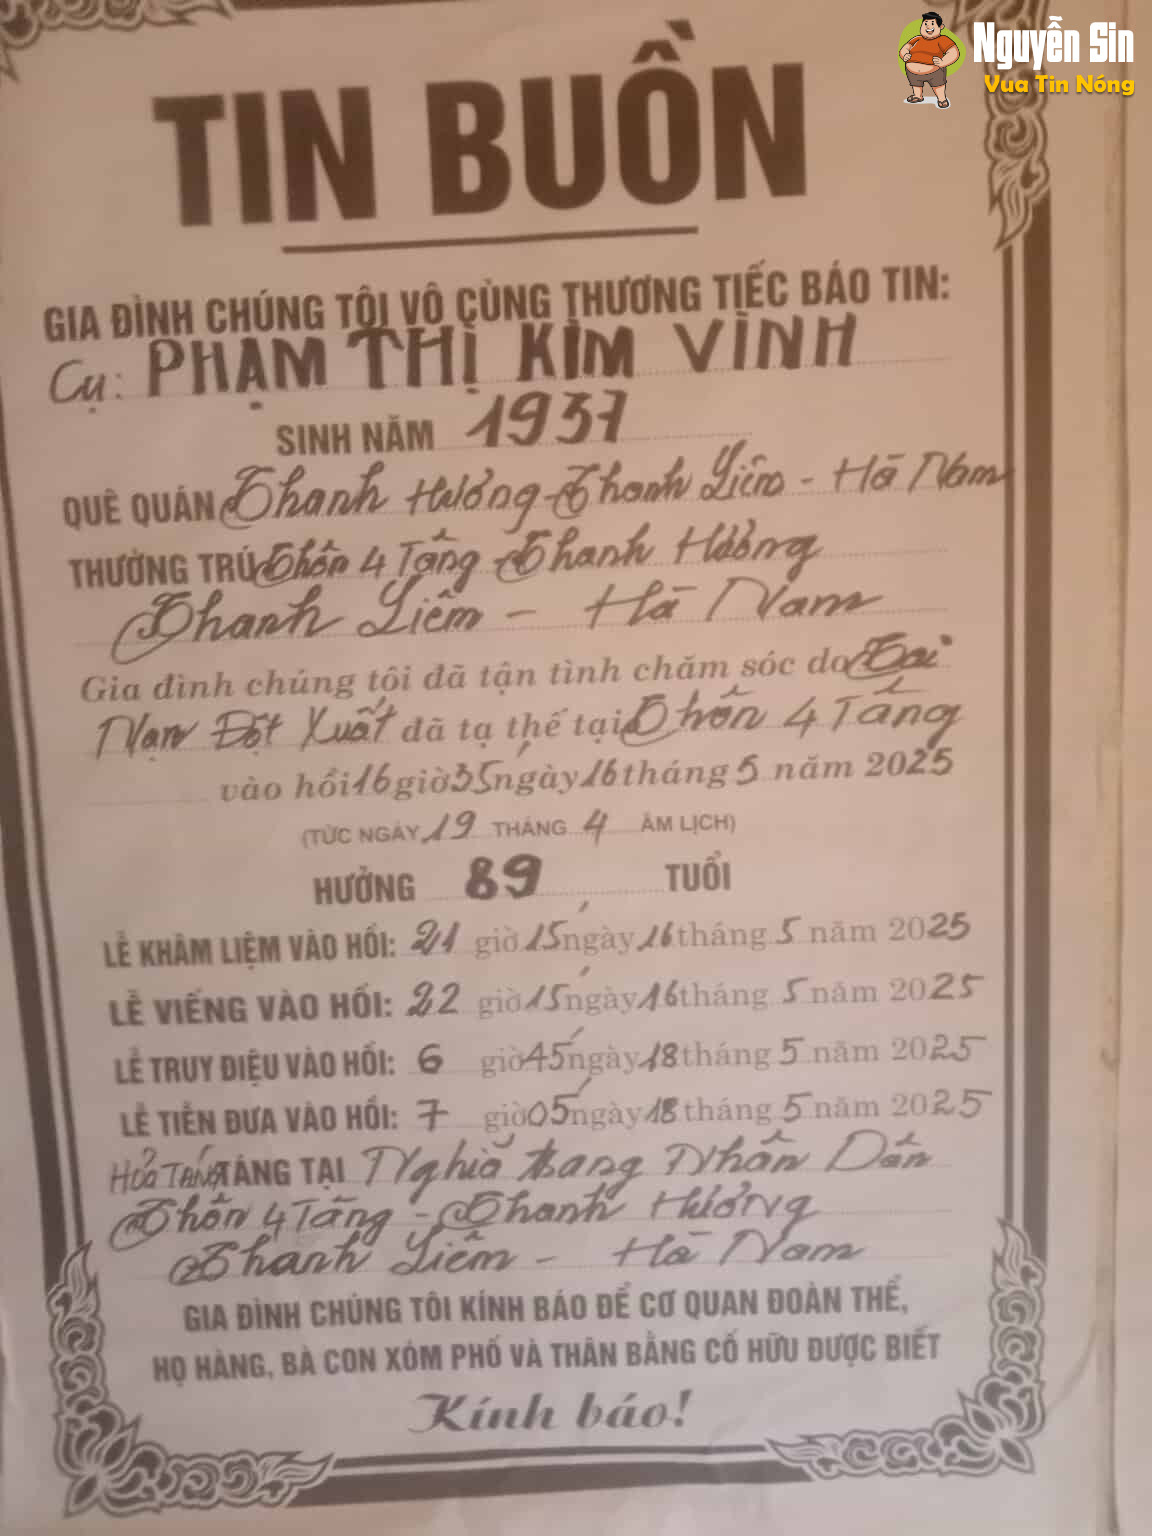 Nguyễn Sin
Vua Tin Nóng
TIN BUỒN
GIA ĐÌNH CHÚNG TÔI VÔ CÙNG THƯƠNG TIẾC BÁO TIN:
Cụ: PHẠM THỊ KIM VINH
SINH NĂM 1937
QUÊ QUÁN Thanh Hương - Thanh Liêm - Hà Nam
THƯỜNG TRÚ Thôn 4 Tâng - Thanh Hương
Thanh Liêm - Hà Nam
Gia đình chúng tôi đã tận tình chăm sóc do Tai
Nạn Đột Xuất đã tạ thế tại Thôn 4 Tâng
vào hồi 16 giờ 35' ngày 16 tháng 5 năm 2025
(TỨC NGÀY 19 THÁNG 4 ÂM LỊCH)
HƯỞNG 89 TUỔI
LỄ KHÂM LIỆM VÀO HỒI: 21 giờ 15' ngày 16 tháng 5 năm 2025
LỄ VIẾNG VÀO HỒI: 22 giờ 15' ngày 16 tháng 5 năm 2025
LỄ TRUY ĐIỆU VÀO HỒI: 6 giờ 45' ngày 18 tháng 5 năm 2025
LỄ TIỄN ĐƯA VÀO HỒI: 7 giờ 05' ngày 18 tháng 5 năm 2025
HỎA TÁNG TÁNG TẠI Nghĩa trang Nhân Dân
Thôn 4 Tâng - Thanh Hương
Thanh Liêm - Hà Nam
GIA ĐÌNH CHÚNG TÔI KÍNH BÁO ĐỂ CƠ QUAN ĐOÀN THỂ,
HỌ HÀNG, BÀ CON XÓM PHỐ VÀ THÂN BẰNG CỐ HỮU ĐƯỢC BIẾT
Kính báo!